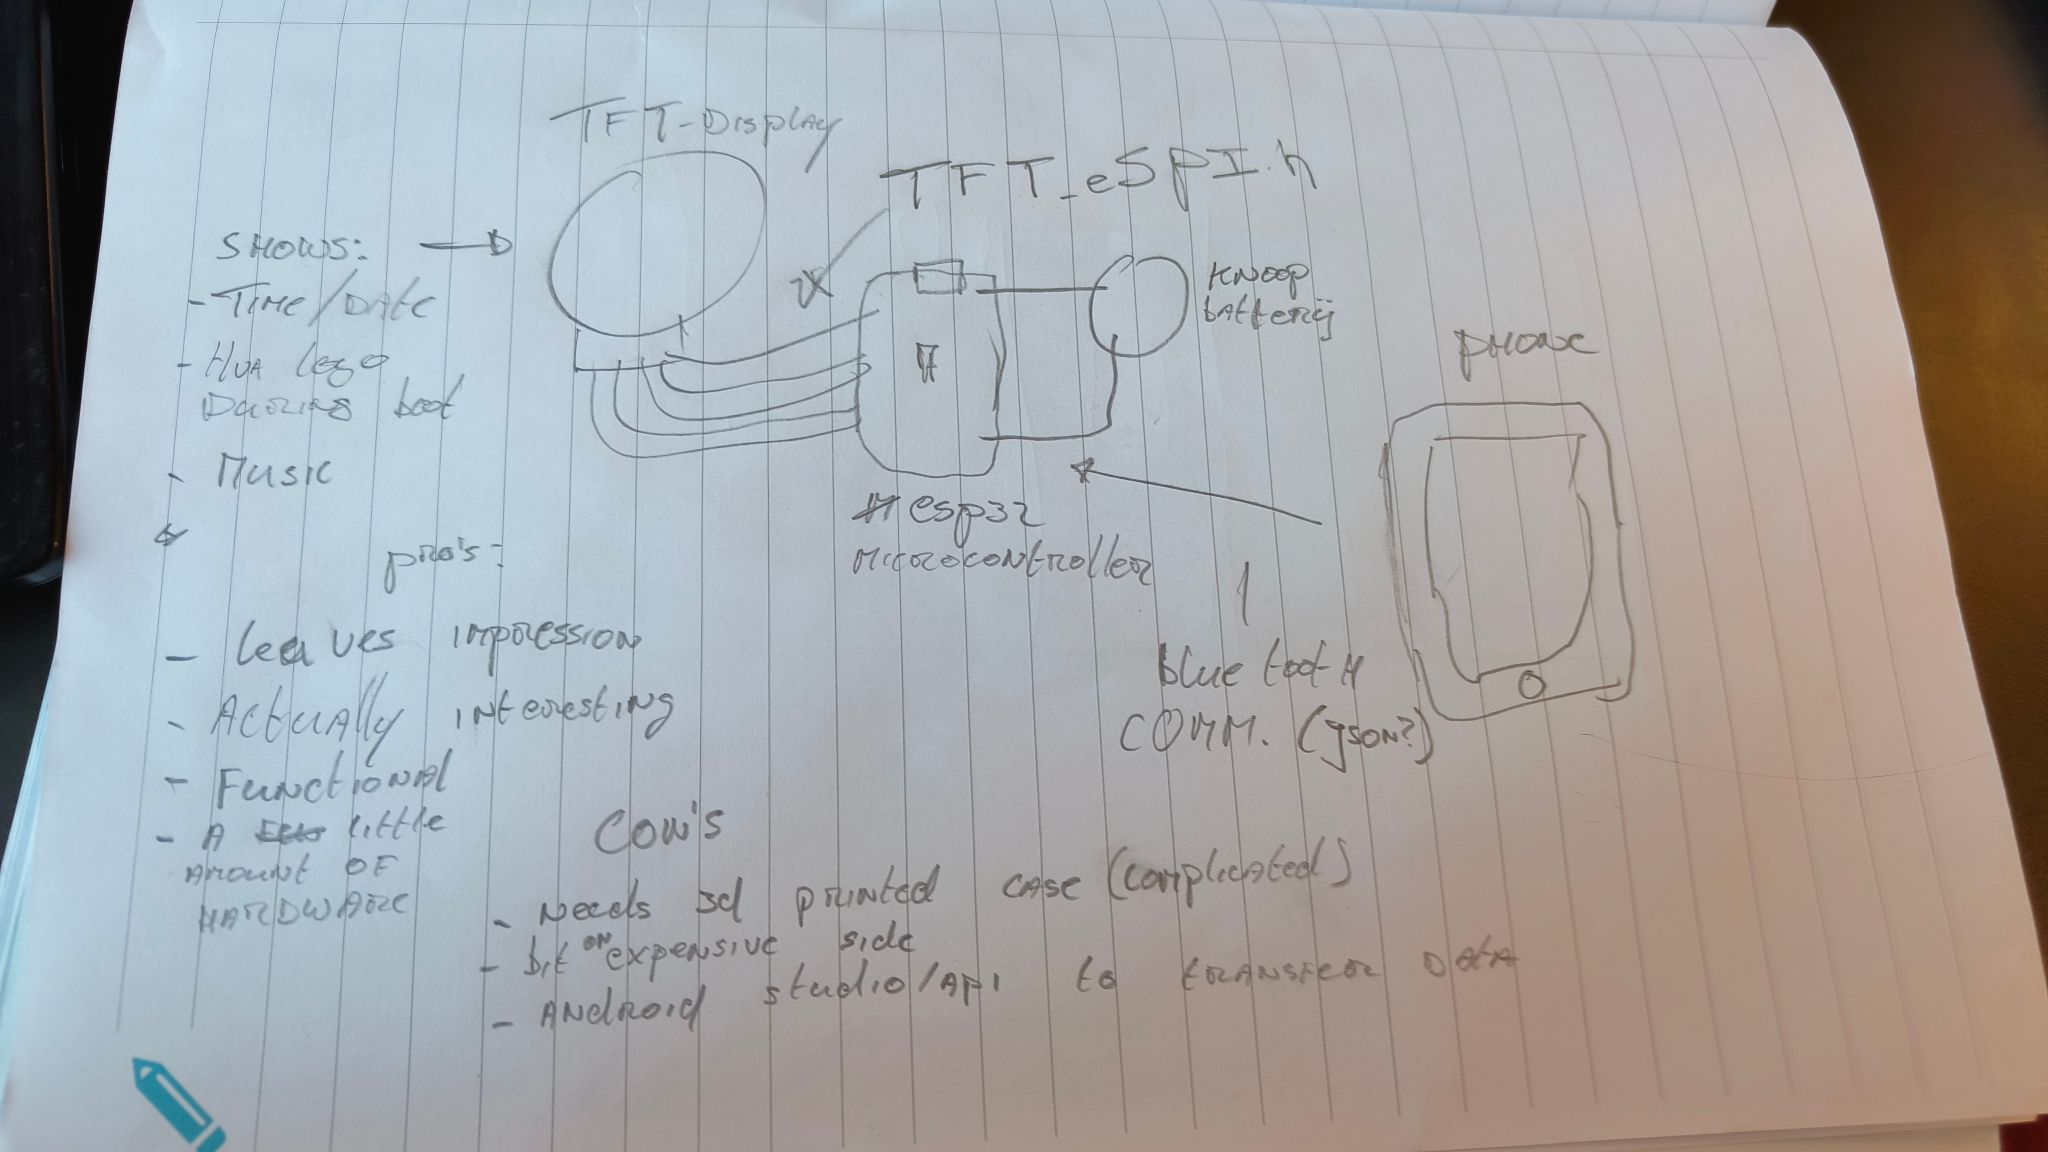 TFT-Display
TFT_eSPI.h
SHOWS:
- TIME/DATE
- HvA logo
During boot
- Music
KNOOP
batterij
PHONE
esp32
MICROCONTROLLER
Bluetooth
COMM. (JSON?)
pro's:
- leaves impression
- Actually interesting
- Functional
- A little
Amount OF
HARDWARE
Con's
- Needs 3d printed case (complicated)
- bit on expensive side
- Android studio/API to transfer DATA